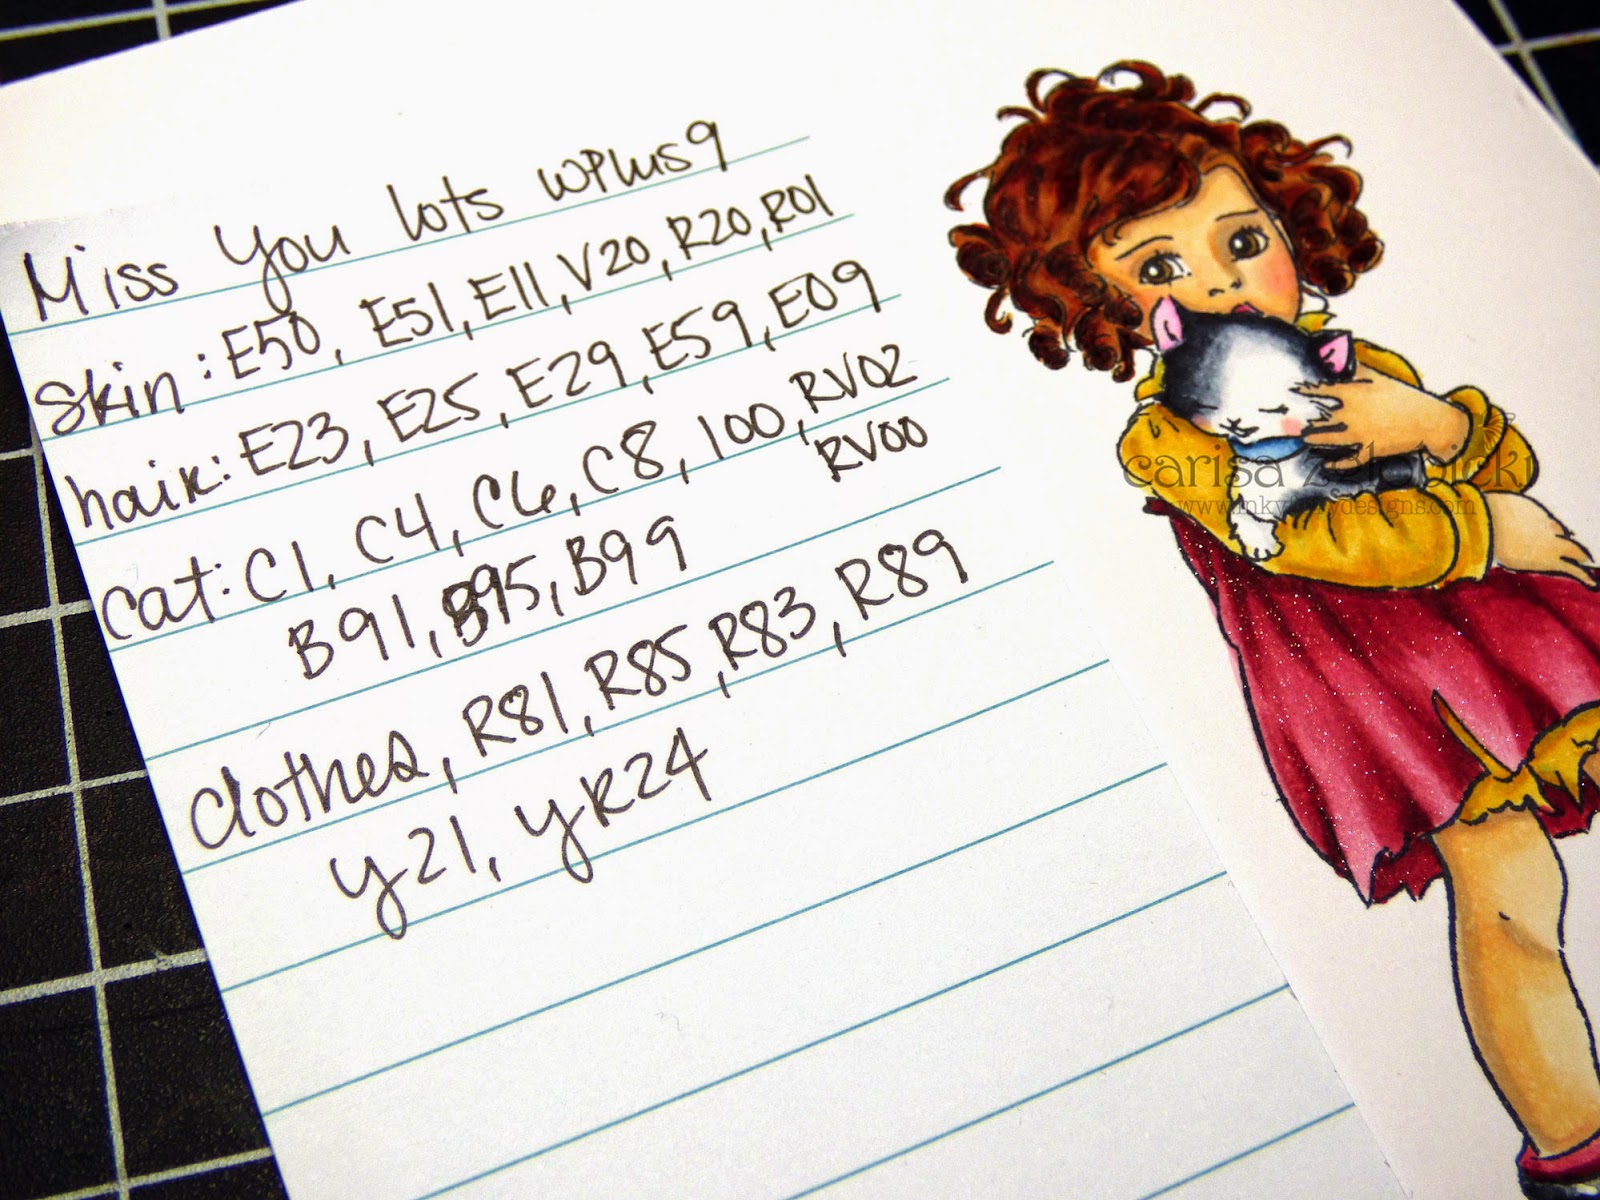 Miss You lots WPlus9
Skin: E50, E51, E11, V20, R20, R01
hair: E23, E25, E29, E59, E09
Cat: C1, C4, C6, C8, 100, RV02
RV00
B91, B95, B99
Clothes, R81, R85, R83, R89
Y21, YR24
carisa